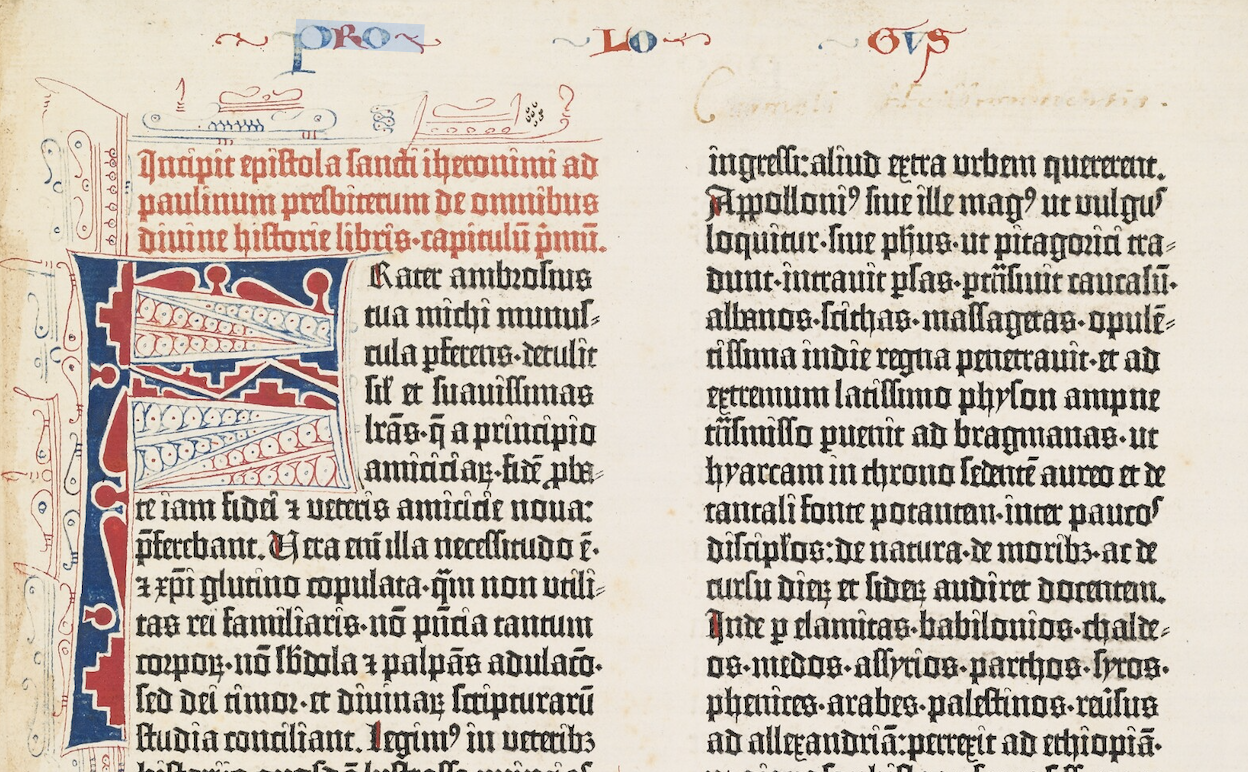 PRO LO GVS
Incipit epistola sancti iheronimi ad
paulinum presbiterum de omnibus
divine historie libris·capitulū p̄mū.
Frater ambrosius
tua michi munus⸗
cula p̲ferens·detulit
sil̄ et suavissimas
lrās·q̄ a principio
amiciciaꝝ·fidē ꝓba⸗
te iam fidei ⁊ veteris amicicie noua:
p̄ferebant. Uera eni̅ illa necessitudo ē·
⁊ xp̄i glutino copulata·q̄m non utili⸗
tas rei familiaris·nō p̄n̄cia tantum
corpoꝝ·nō sb̄dola ⁊ palpās adulac̄o·
sed dei timor·et divinaꝝ scripturarū
studia conciliant. Legimꝰ in veteribꝫ
ingressi:aliud extra urbem quererent.
Appolloniꝰ siue ille magꝰ ut vulgus
loquitur·siue ph̄us·ut pitagorici tra⸗
dunt·intrauit p̲sas·p̲trāsiuit caucasū·
albanos·scithas·massagetas·opulē⸗
tissima indie regna penetrauit·et ad
extremum latissimo physon ampne
trāsmisso p̲uenit ad bragmanas·ut
hyarcam in throno sedentē aureo et de
tantali fonte potantem·inter paucos
discip̄los:de natura·de moribꝫ·ac de
cursu dieꝝ et sideꝝ audiret docentem.
Inde p̲ elamitas·babilonios·chalde⸗
os·medos·assyrios·parthos·syros·
phenices·arabes·palestinos·reūsus
ad allexandriā:perrexit ad ethiopiā·